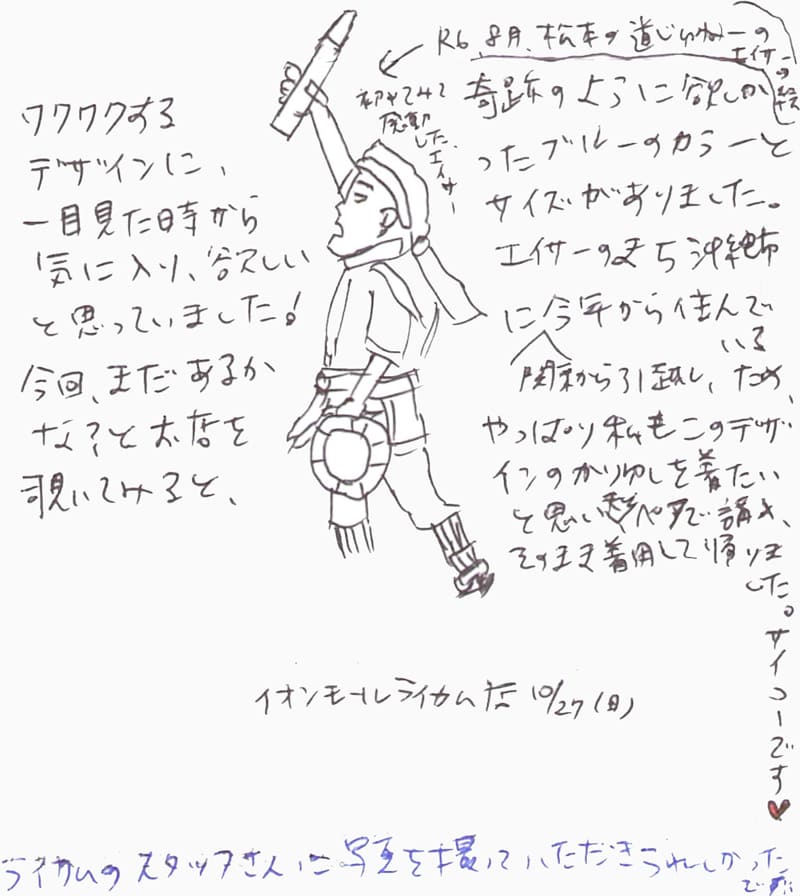 ワクワクする
デザインに、
一目見た時から
気に入り、欲しい
と思っていました!
今回、まだあるか
な?とお店を
覗いてみると、
R6、8月、松本の道じゅねーの
エイサーの絵
初めてみて
感動
した、
エイサー
奇跡のように欲しか
ったブルーのカラーと
サイズがありました。
エイサーのまち沖縄市
に今年から住んで
いる
関東から引越し、ため、
やっぱり私もこのデザ
インのかりゆしを着たい
と思いペアで購入、
そのまま着用して帰りま
した。サイコーです♥
イオンモールライカム店 10/27(日)
ライカムのスタッフさんに写真を撮っていただきうれしかった
です